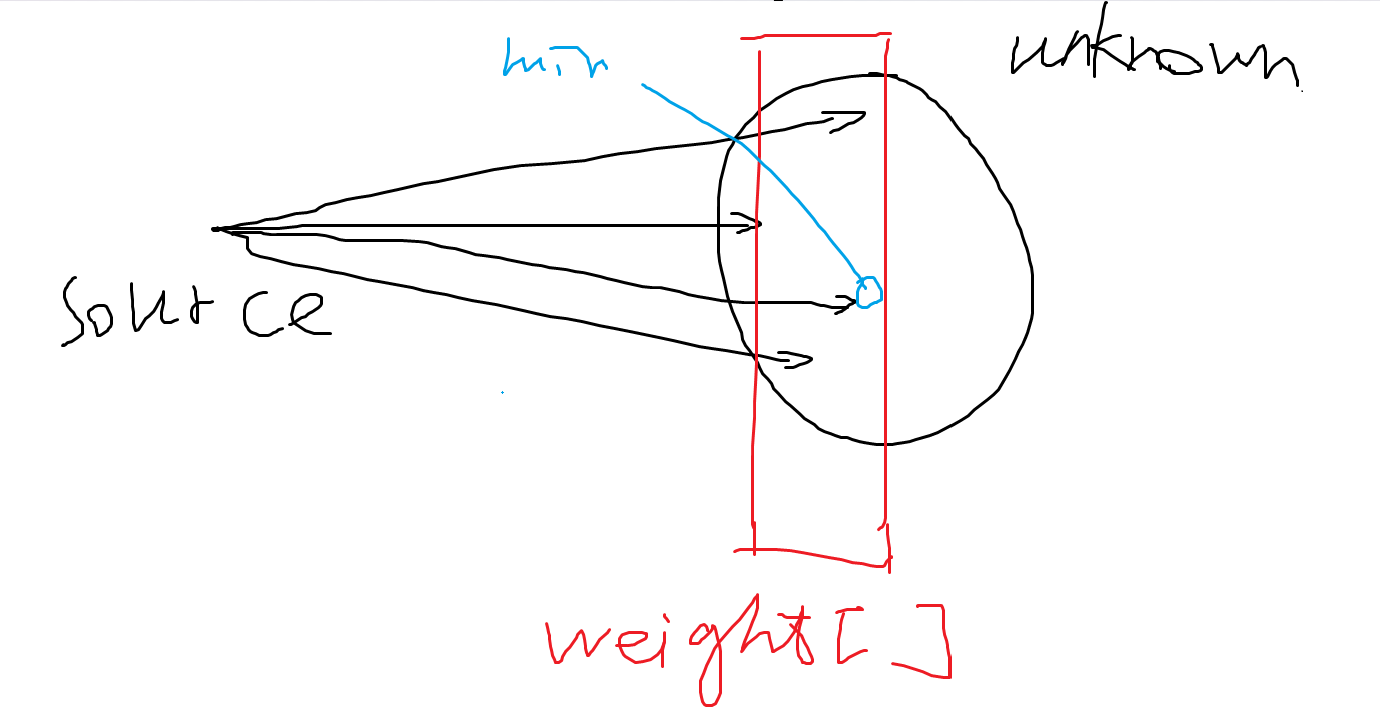 min
unknown
source
weight[ ]